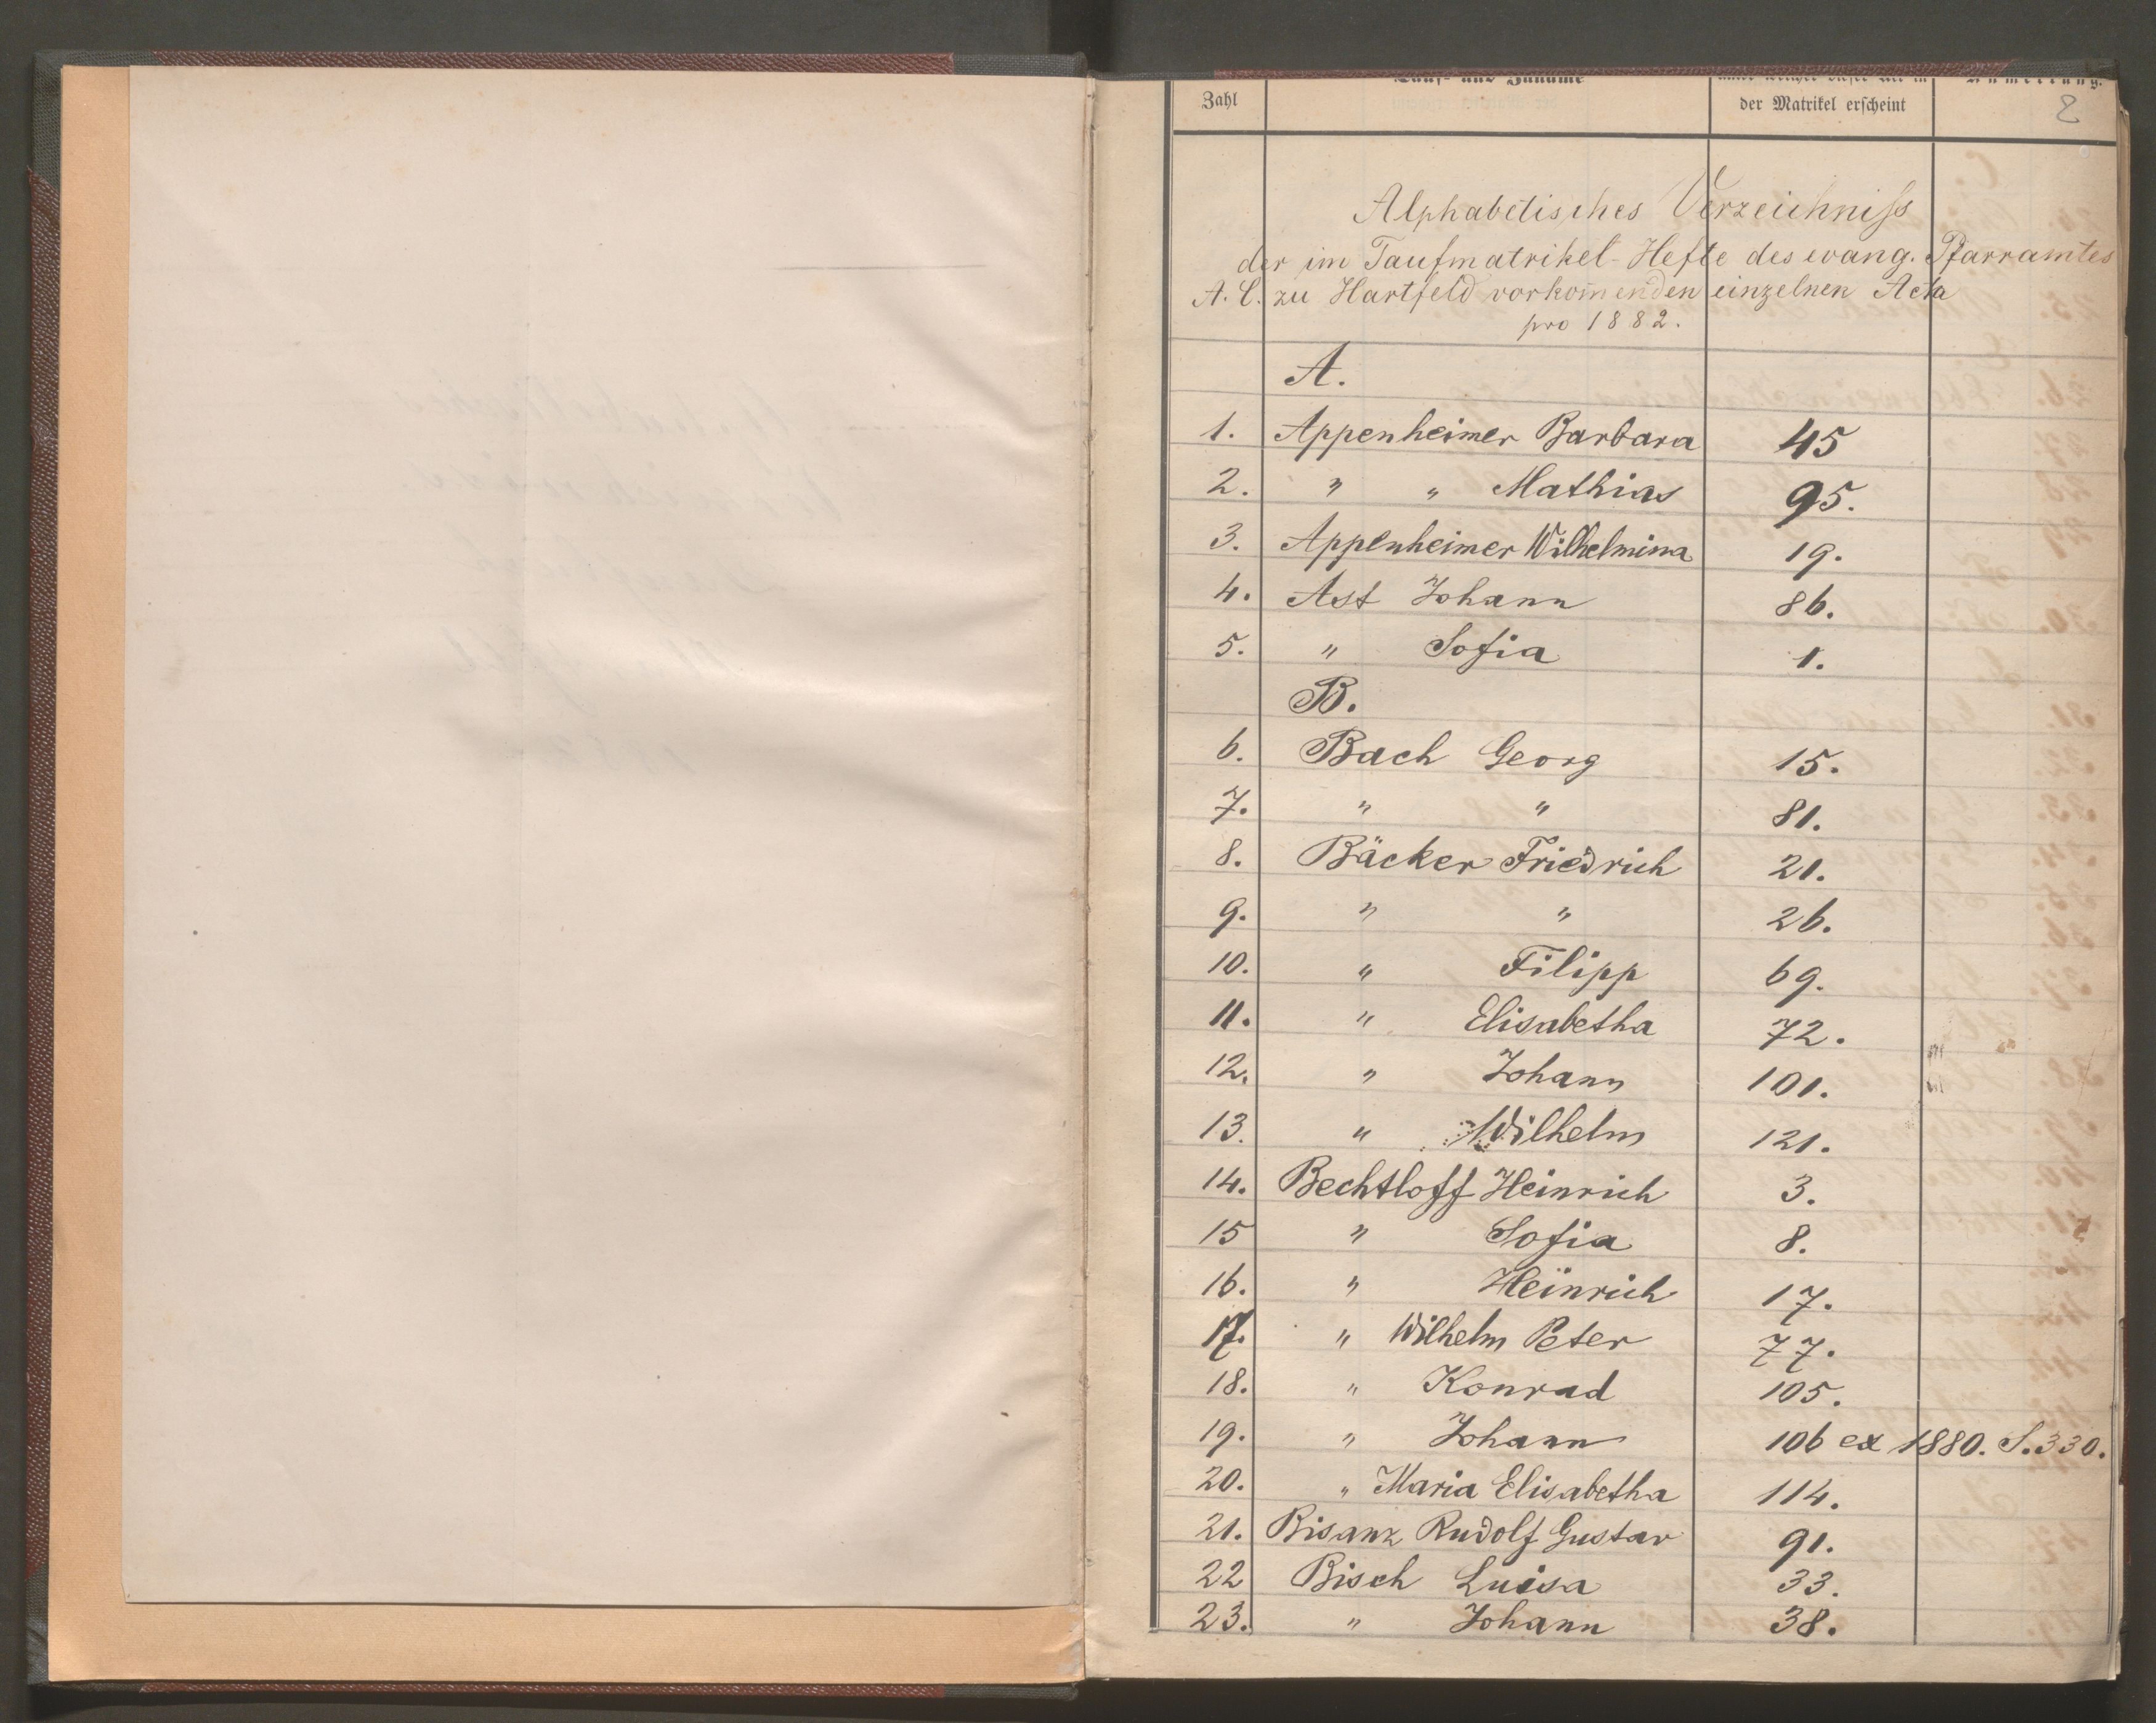 Zahl Tauf- und Zuname der Matrikel erscheint Anmerkung.
2
Alphabetisches Verzeichniss
der im Taufmatrikel-Hefte des evang. Pfarramtes
A. C. zu Hartfeld vorkommenden einzelnen Acta
pro 1882.
A.
1. Appenheimer Barbara 45
2. " " Mathias 95.
3. Appenheimer Wilhelmina 19.
4. Ast Johann 86.
5. " Sofia 1.
B.
6. Bach Georg 15.
7. " " 81.
8. Bäcker Friedrich 21.
9. " " 26.
10. " Filipp 69.
11. " Elisabetha 72.
12. " Johann 101.
13. " Wilhelm 121.
14. Bechtloff Heinrich 3.
15 " Sofia 8.
16. " Heinrich 17.
17. " Wilhelm Peter 77.
18. " Konrad 105.
19. " Johann 106 ex 1880. S. 330.
20. " Maria Elisabetha 114.
21. Bisanz Rudolf Gustav 91.
22 Bisch Luisa 33.
23. " Johann 38.